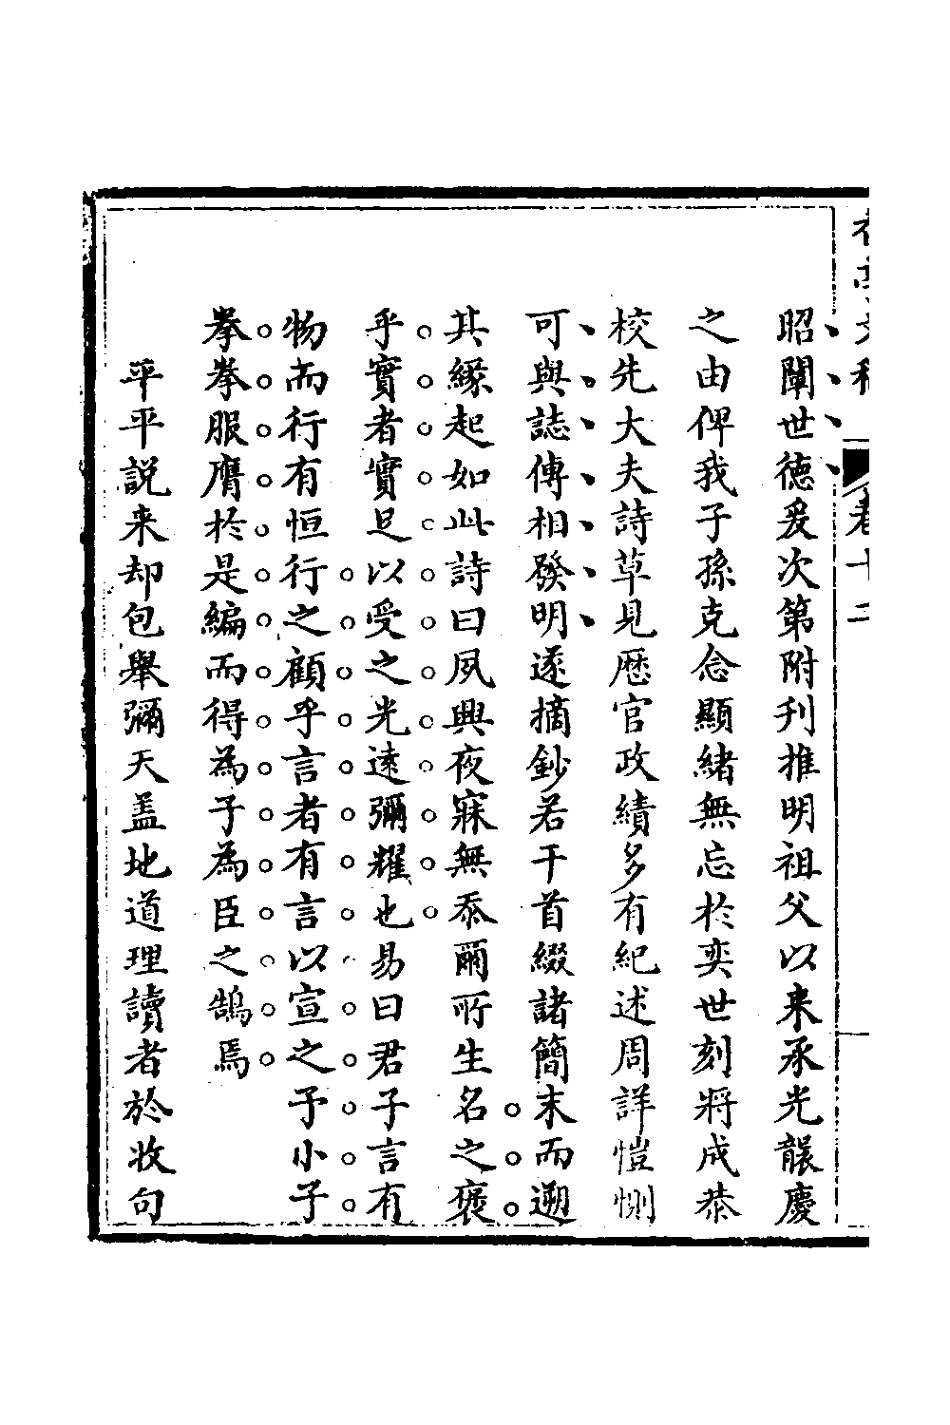 卷十二
昭闡世德爰次第附刋推明祖父以来承光襲慶
之由俾我子孫克念顯緒無忘於奕世刻將成恭
校先大夫詩草見歷官政績多有紀述周詳愷惻
可與誌傳相發明遂摘鈔若干首綴諸簡末而遡
其緣起如此詩曰夙興夜寐無忝爾所生名之褒
乎實者實足以受之光遠彌耀也易曰君子言有
物而行有恒行之顧乎言者有言以宣之予小子
拳拳服膺於是編而得為子為臣之鵠焉
平平説来却包舉彌天盖地道理讀者於收句